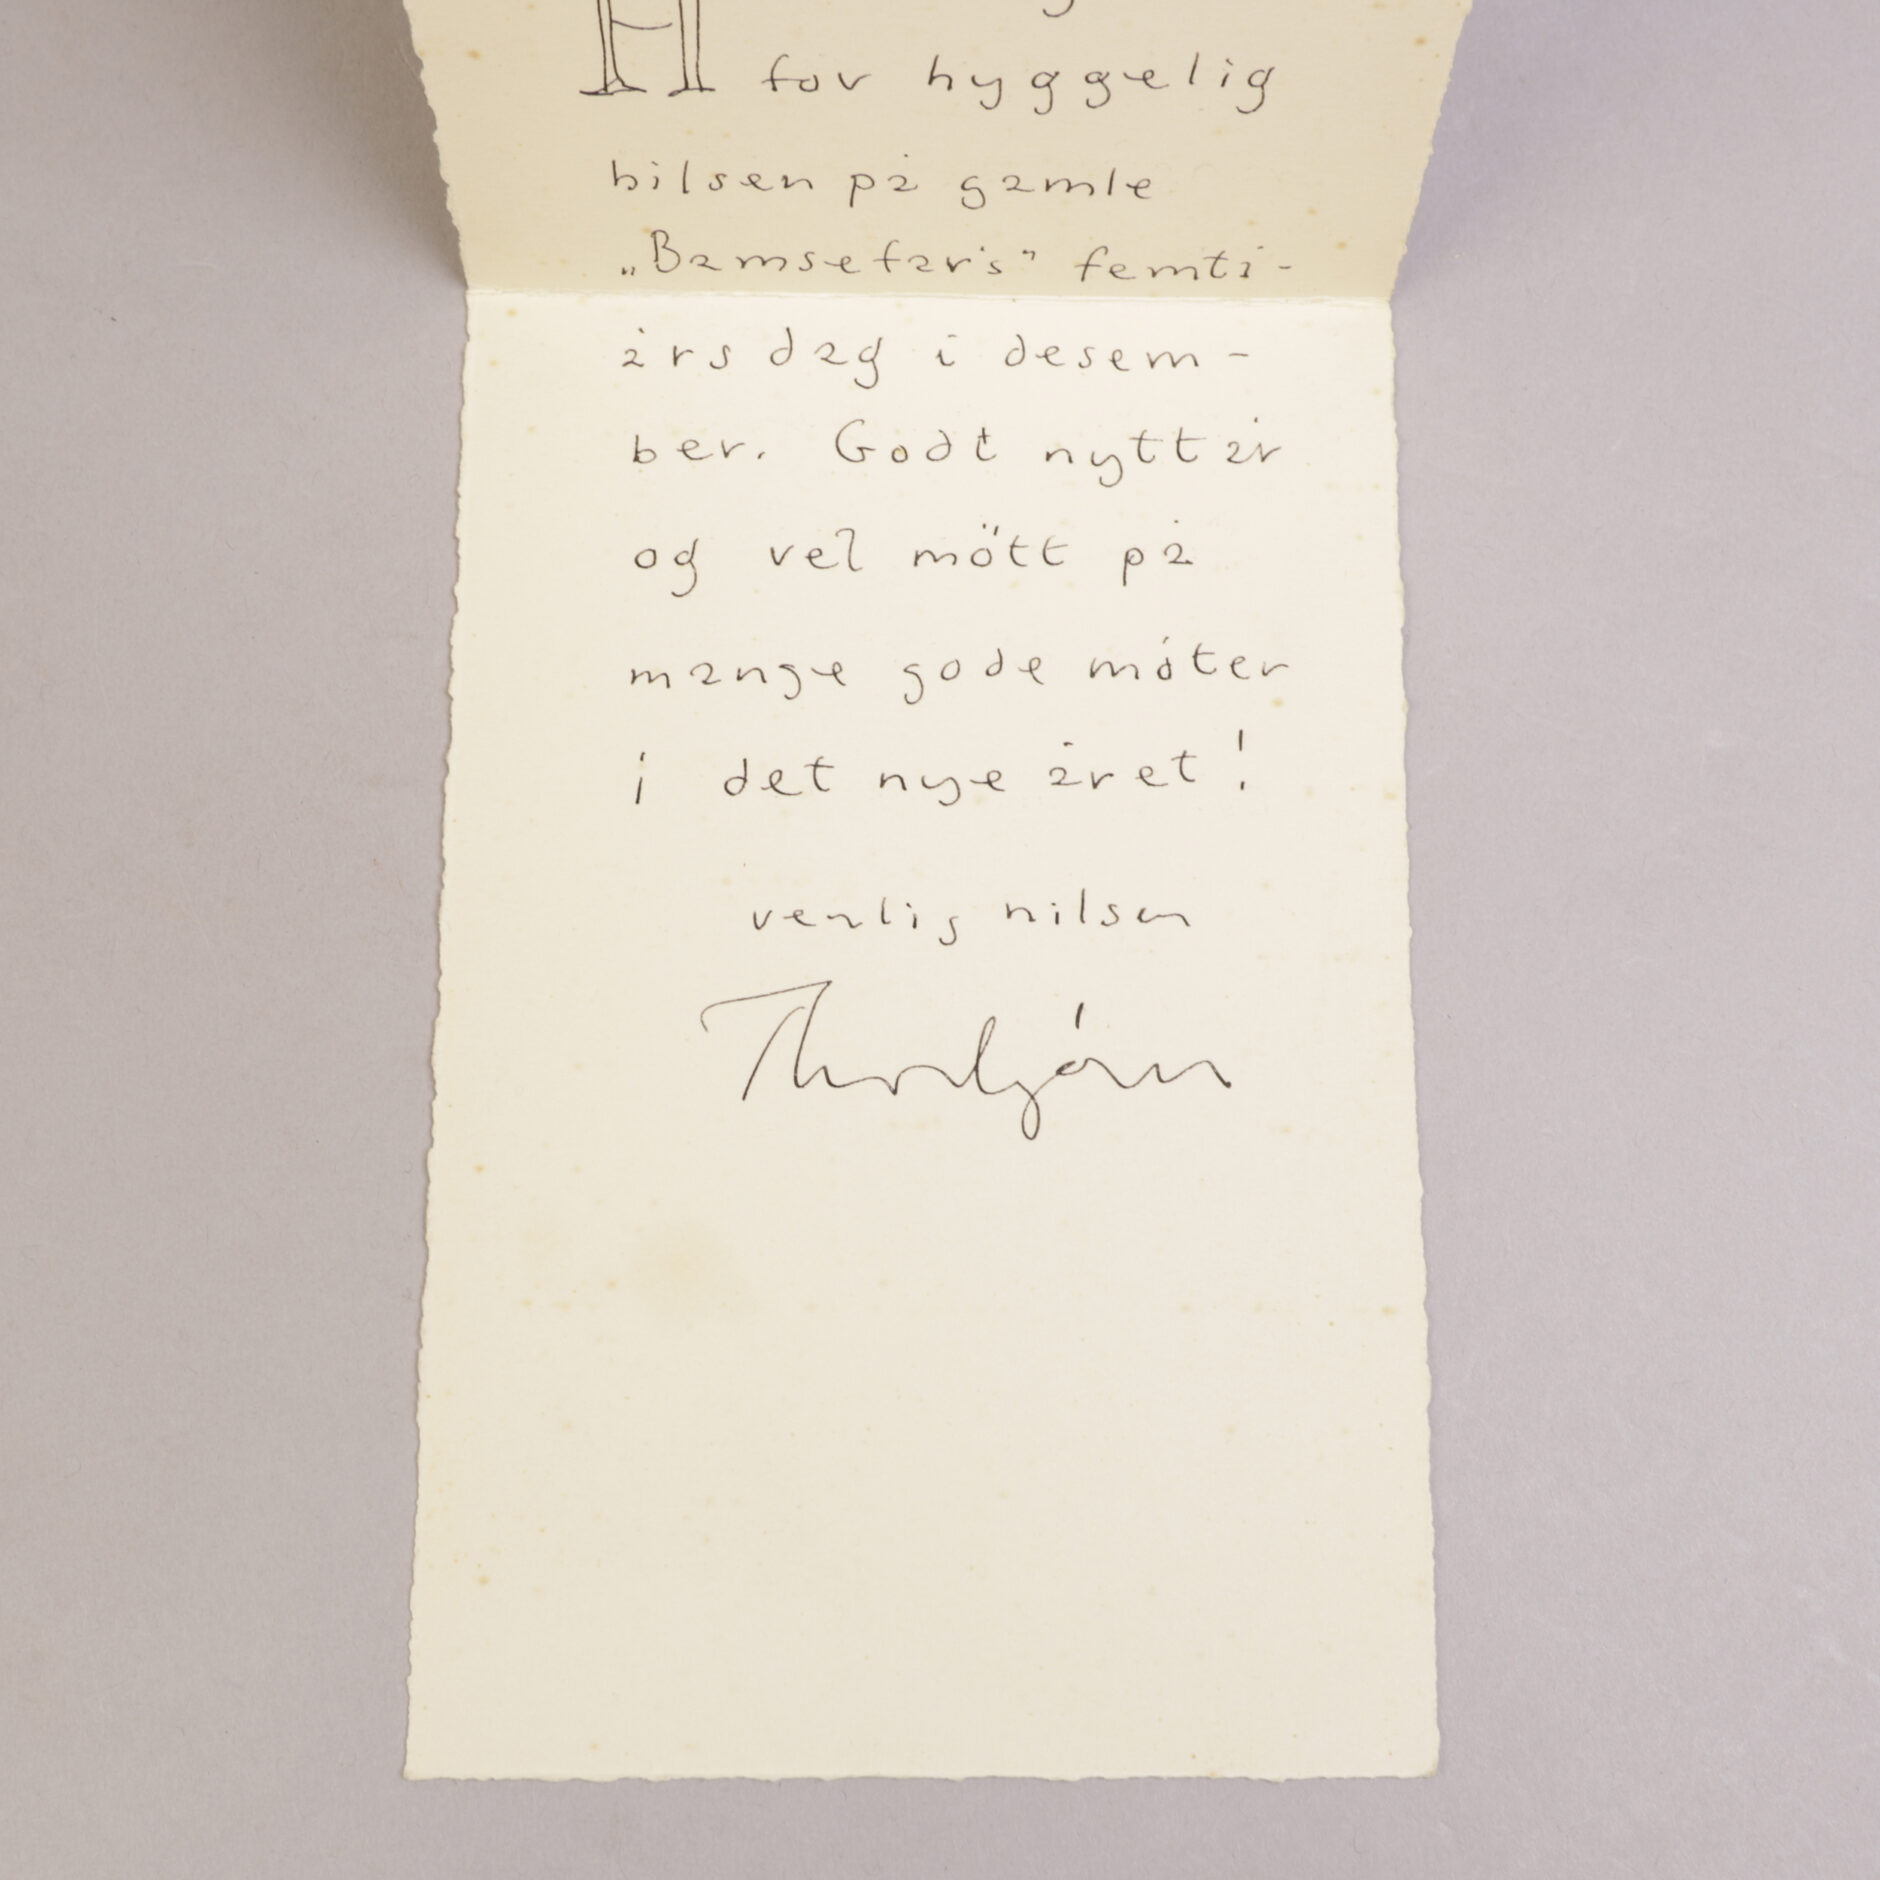 H for hyggelig
hilsen på gamle
„Bamsefar's" femti-
årsdag i desem-
ber. Godt nytt år
og vel mött på
mange gode móter
i det nye året!
venlig hilsen
Thorbjórn